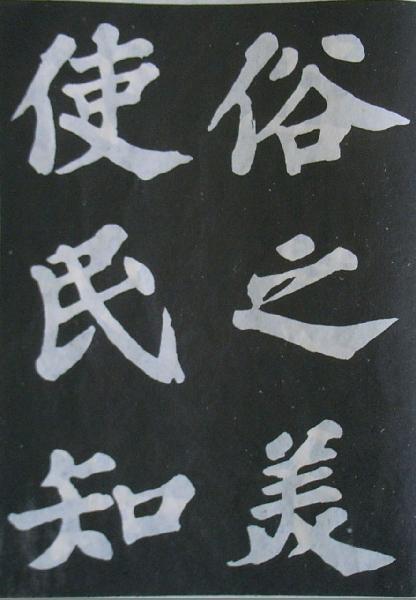 俗之美
使民知